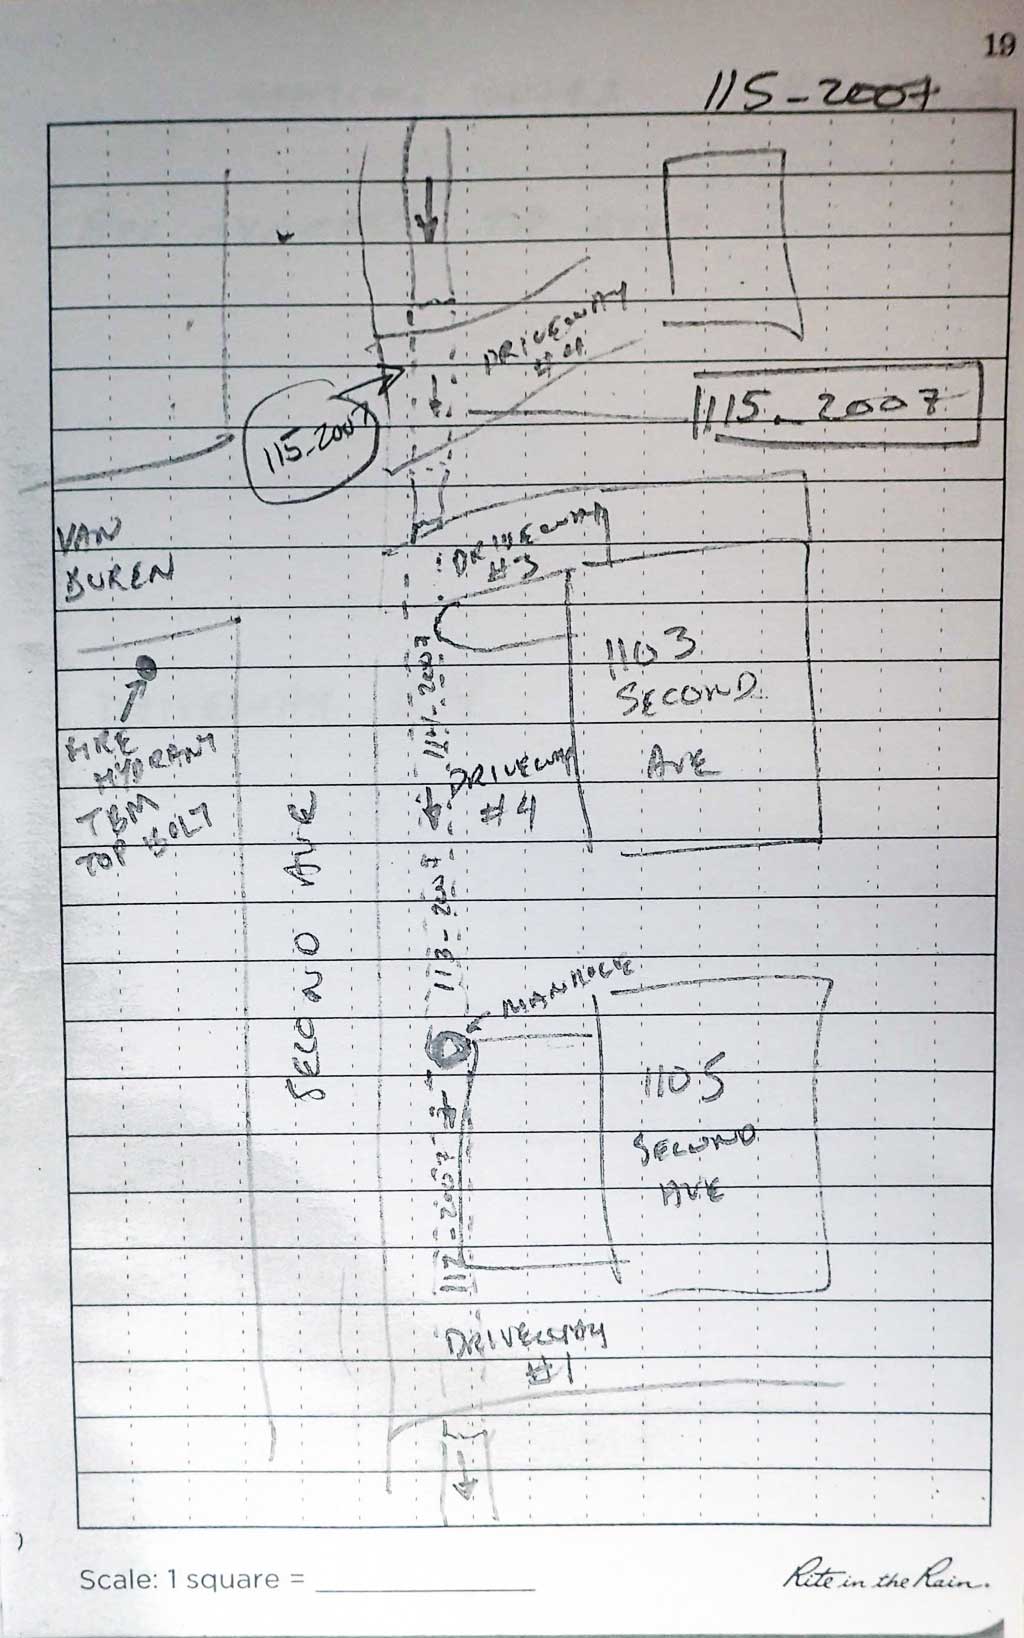 19
115-2007
DRIVEWAY
115-2007
115-2007
VAN
BUREN
DRIVEWAY
#3
1103
SECOND
AVE
114-2007
FIRE
HYDRANT
TBM
TOP BOLT
DRIVEWAY
#4
SECOND AVE
113-2007
MANHOLE
1105
SECOND
AVE
112-2007
DRIVEWAY
#1
Scale: 1 square =
Rite in the Rain.